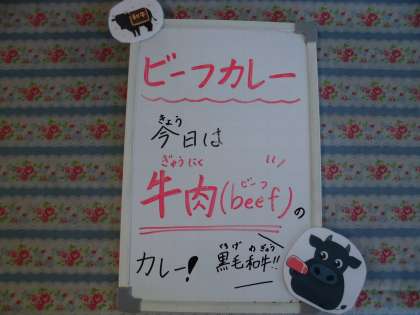 和牛
ビーフカレー
きょう
今日は
ぎゅうにく ビーフ
牛肉(beef)の
くろげ わぎゅう
カレー! 黒毛和牛!!